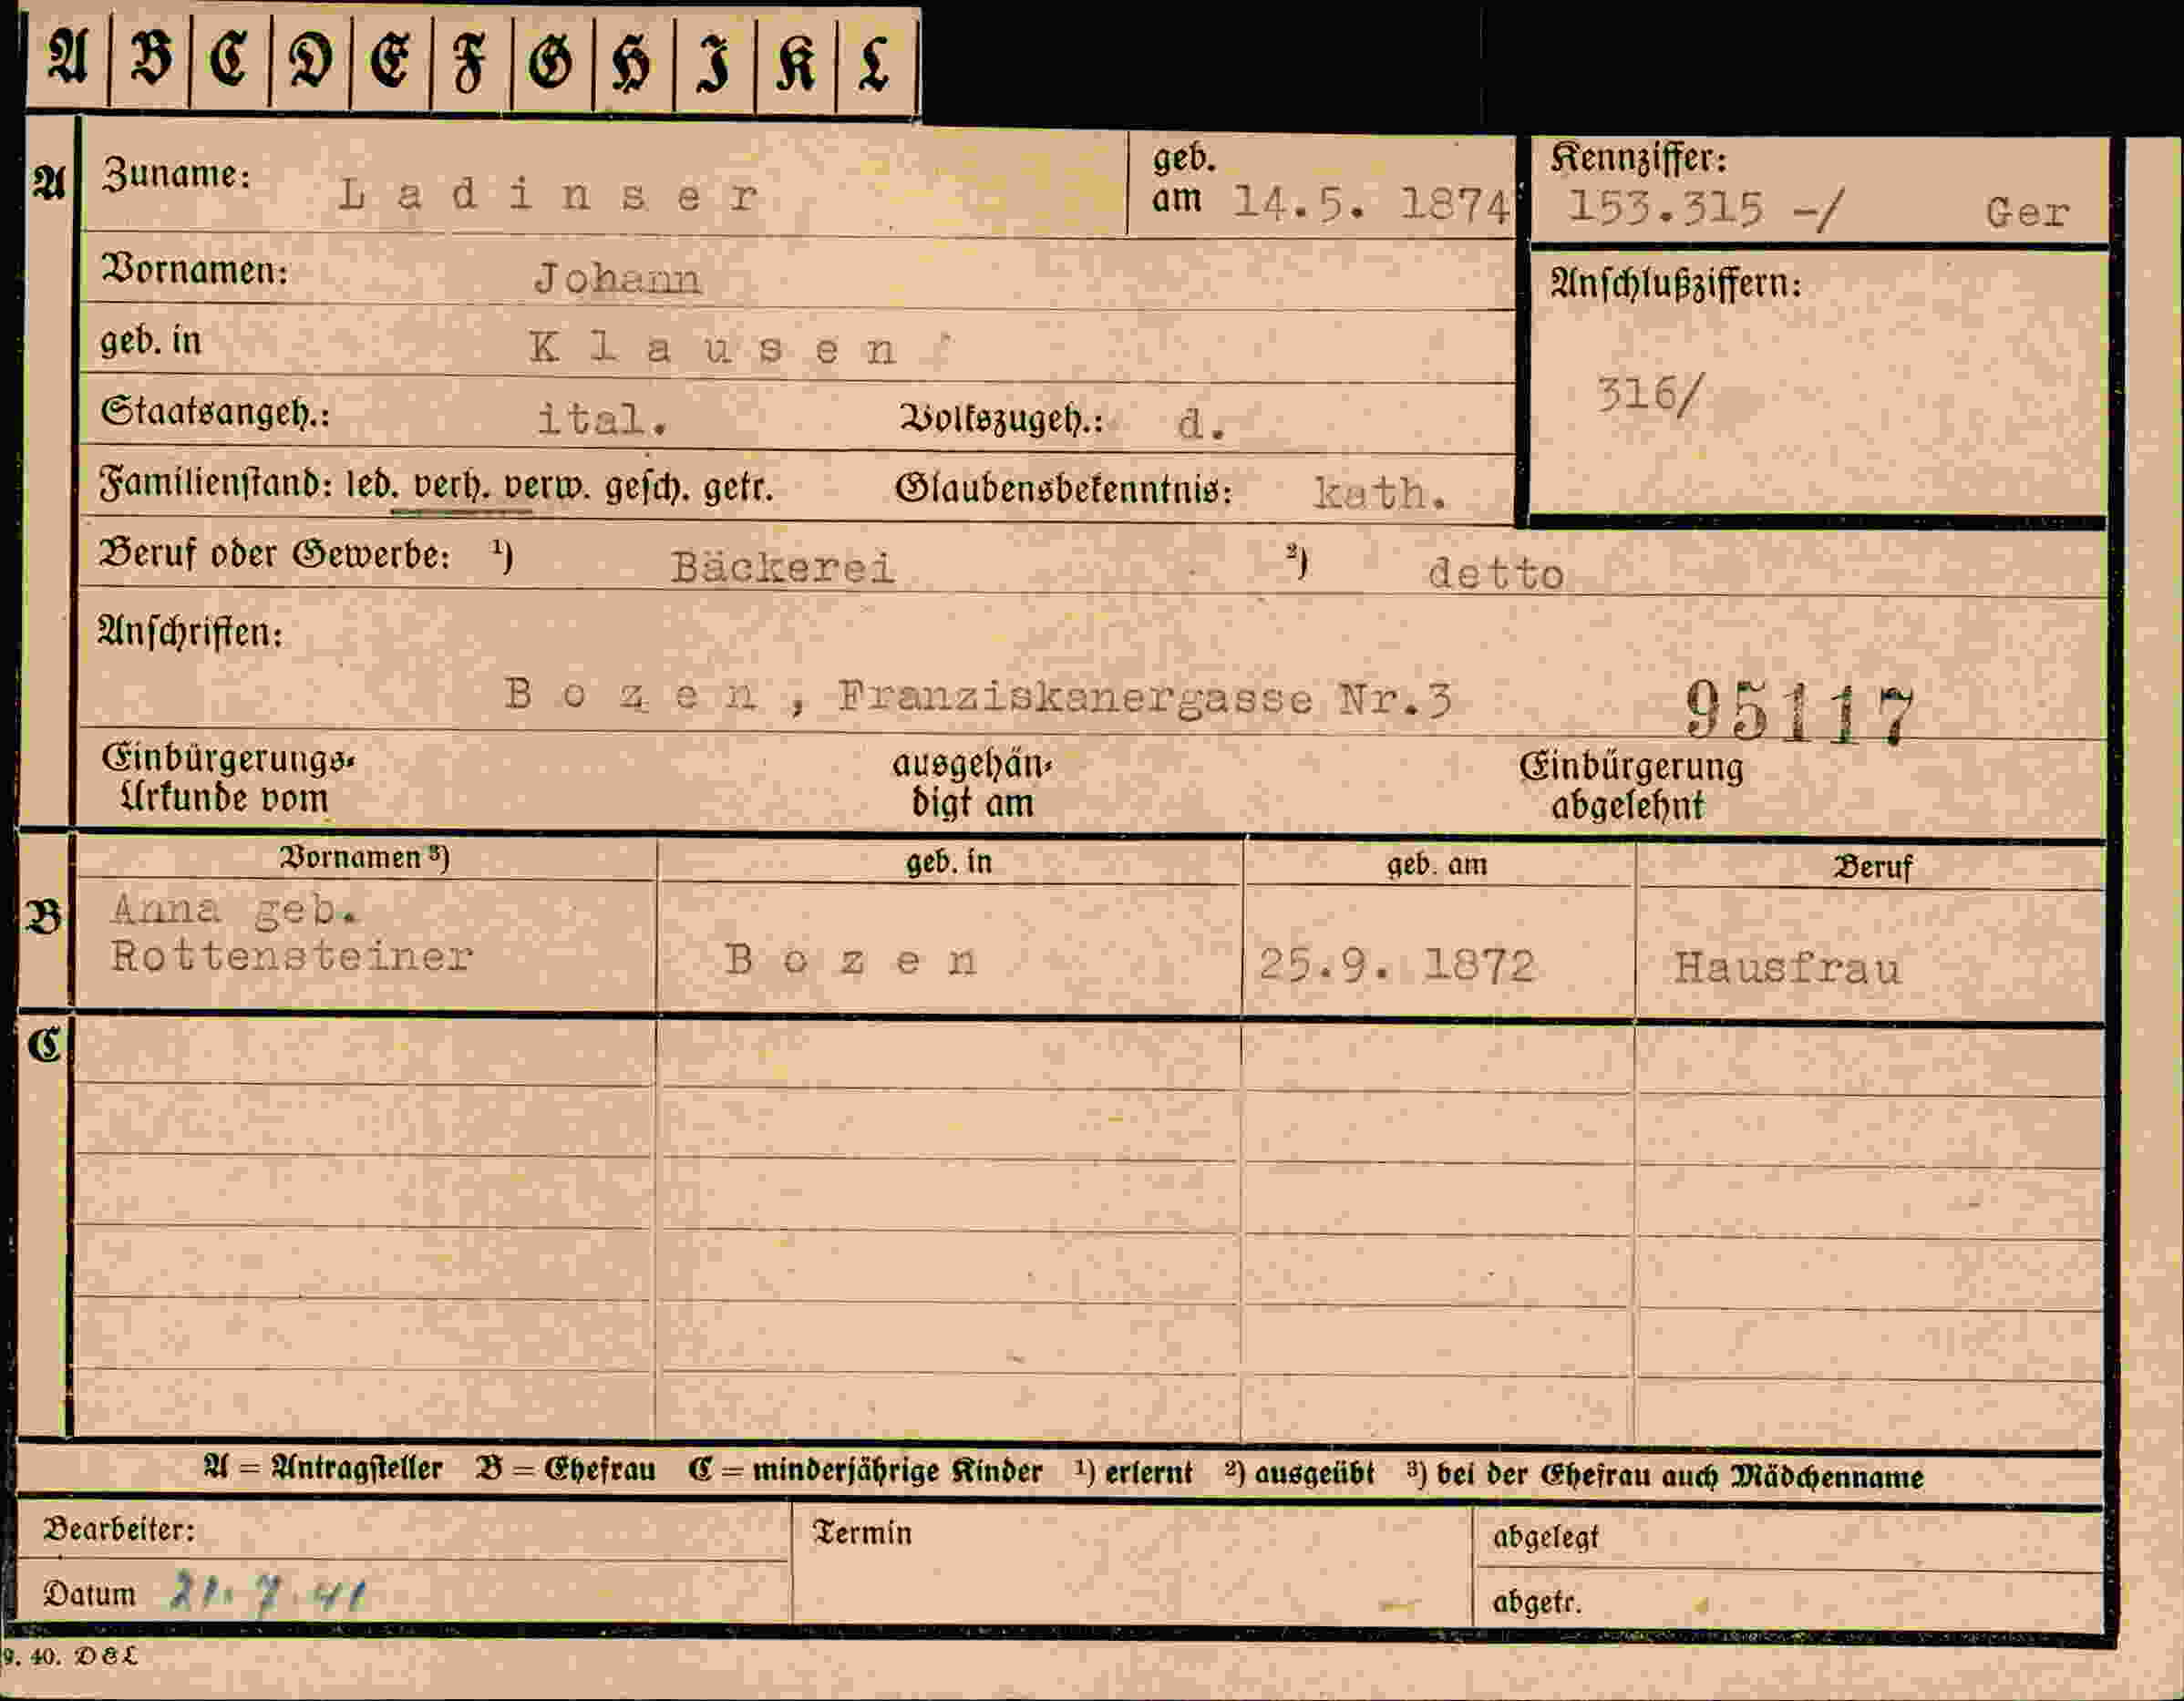 A B C D E F G H I K L
A Zuname: Ladinser geb. am 14.5. 1874 Kennziffer: 153.315 -/ Ger
Vornamen: Johann Anschlußziffern:
geb. in Klausen 316/
Staatsangeh.: ital. Volkszugeh.: d.
Familienstand: led. verh. verw. gesch. getr. Glaubensbekenntnis: kath.
Beruf oder Gewerbe: ¹) Bäckerei ²) detto
Anschriften:
Bozen, Franziskanergasse Nr.3 95117
Einbürgerungs- ausgehän- Einbürgerung
Urkunde vom digt am abgelehnt
Vornamen ³) geb. in geb. am Beruf
B Anna geb.
Rottensteiner Bozen 25.9. 1872 Hausfrau
C
A = Antragsteller B = Ehefrau C = minderjährige Kinder ¹) erlernt ²) ausgeübt ³) bei der Ehefrau auch Mädchenname
Bearbeiter: Termin abgelegt
Datum 21.7.41 abgetr.
9. 40. D&L